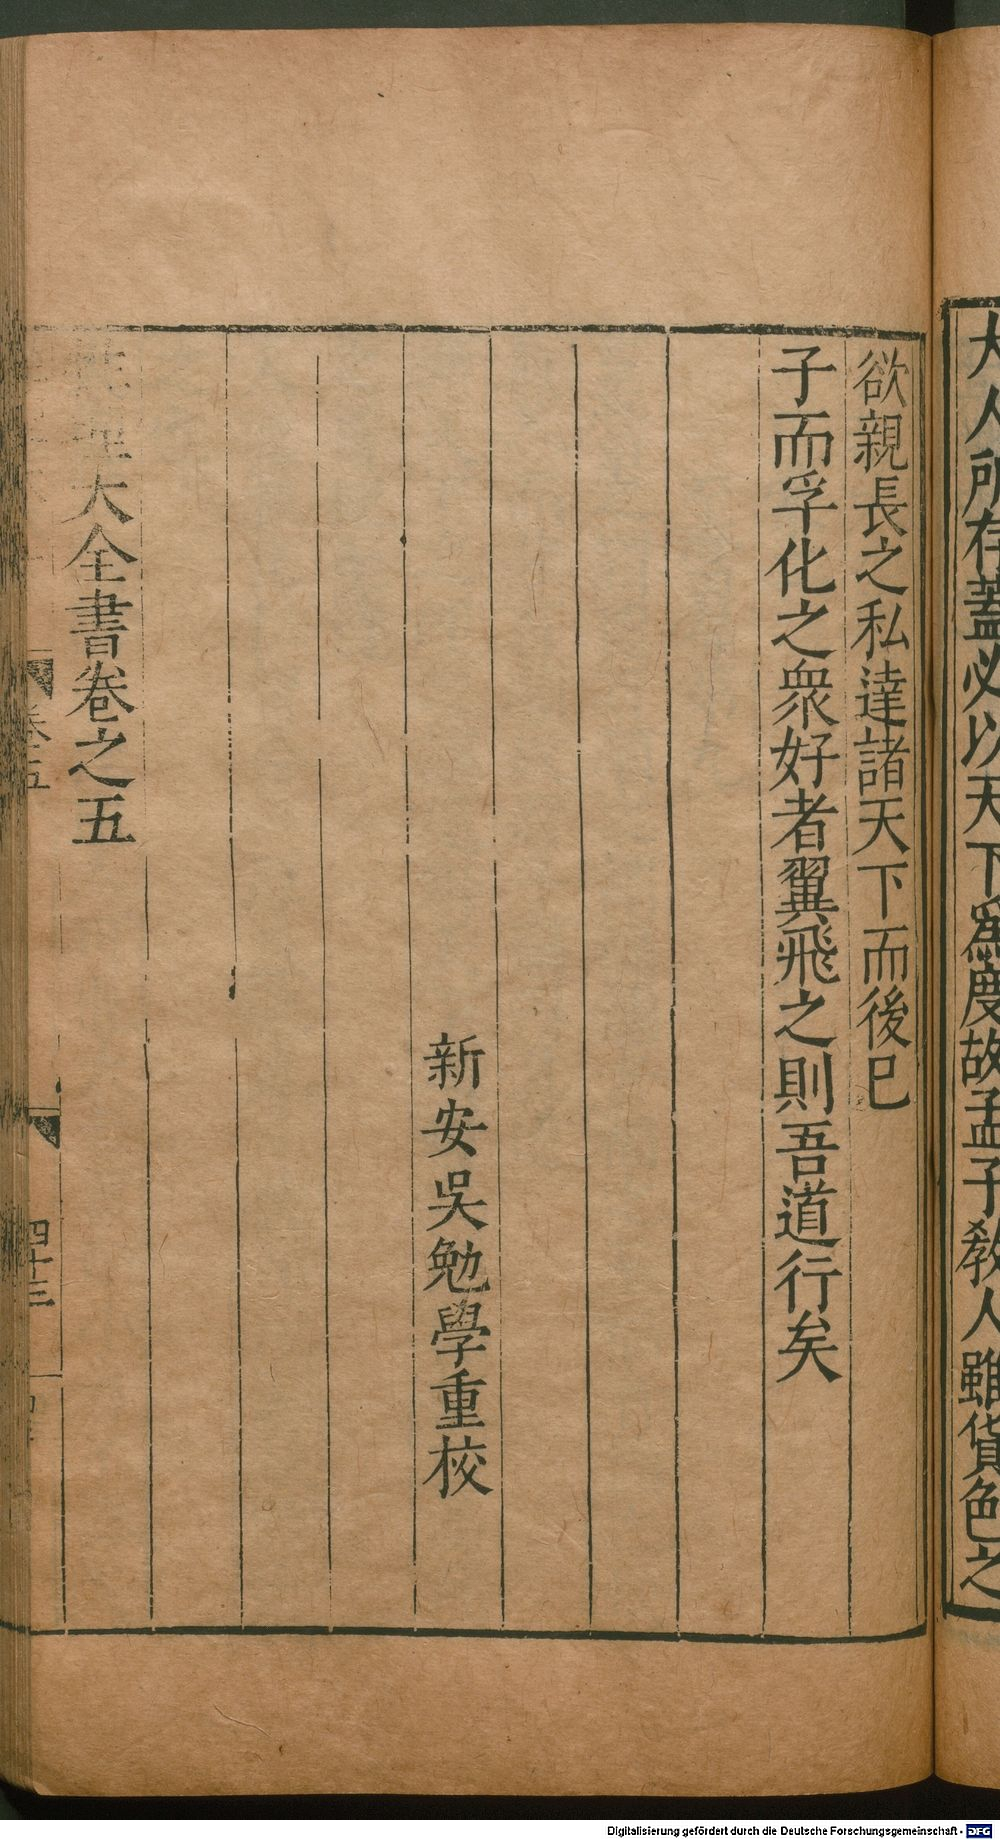 大人所存蓋必以天下爲度故孟子教人雖貨色之
欲親長之私達諸天下而後已
子而孚化之衆好者翼飛之則吾道行矣
新安吳勉學重校
性理大全書卷之五
卷五
四十三
Digitalisierung gefördert durch die Deutsche Forschungsgemeinschaft - DFG